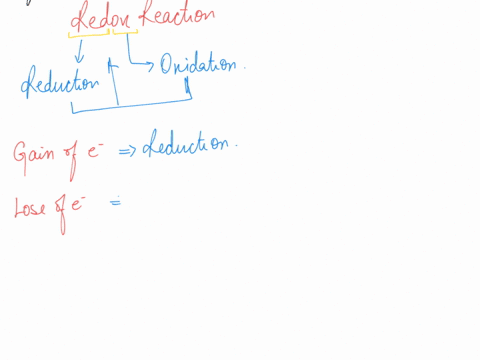 Redox Reaction
Reduction
Oxidation.
Gain of e⁻ ⇒ Reduction.
Lose of e⁻ =